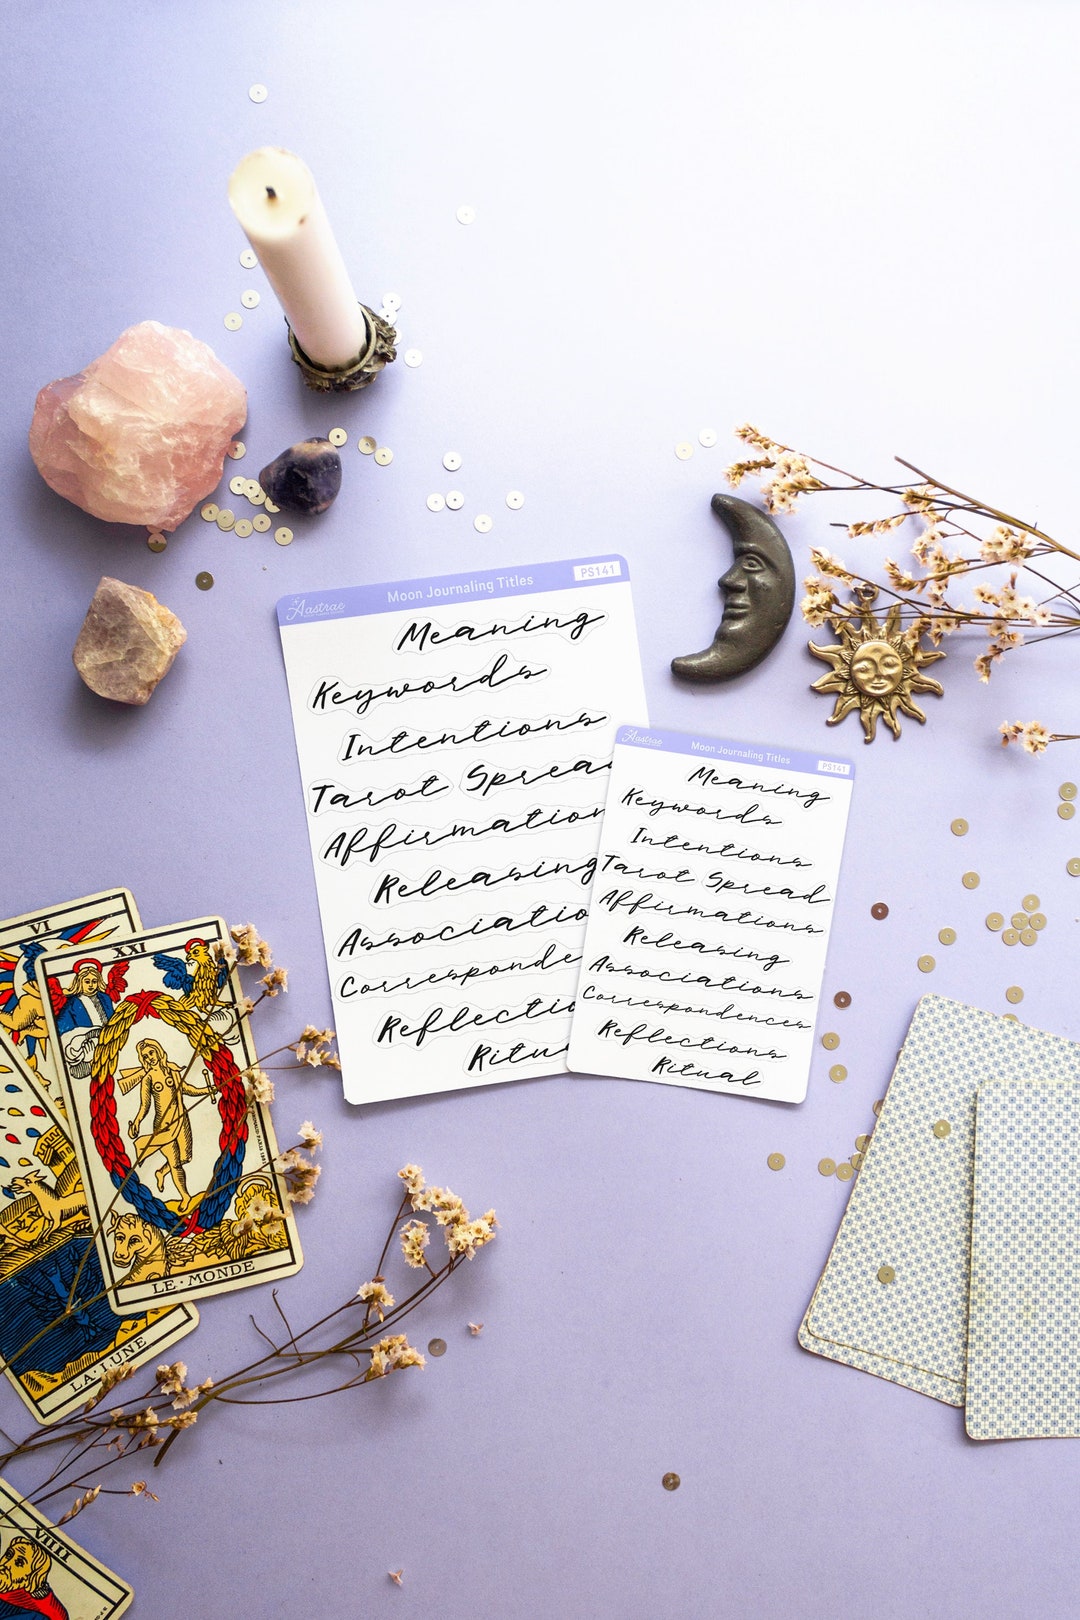 Aastrae
Moon Journaling Titles
PS141
Meaning
Keywords
Intentions
Tarot Sprea
Affirmation
Releasing
Associatio
Corresponde
Reflectio
Ritu
Aastrae
Moon Journaling Titles
PS141
Meaning
Keywords
Intentions
Tarot Spread
Affirmations
Releasing
Associations
Correspondences
Reflections
Ritual
VI
XXI
LE·MONDE
LA·LUNE
VIIII